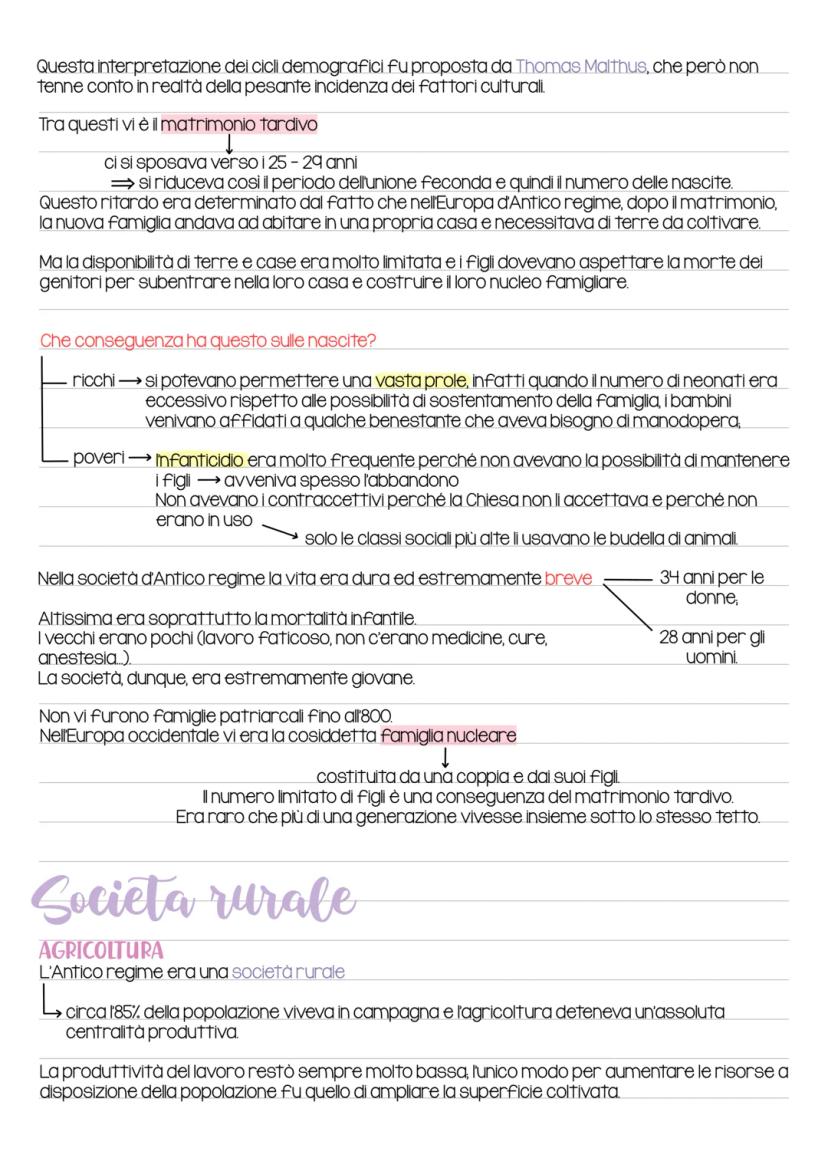 Questa interpretazione dei cicli demografici fu proposta da Thomas Malthus, che però non
tenne conto in realtà della pesante incidenza dei fattori culturali.
Tra questi vi è il matrimonio tardivo
ci si sposava verso i 25 - 29 anni
⟹ si riduceva così il periodo dell'unione feconda e quindi il numero delle nascite.
Questo ritardo era determinato dal fatto che nell'Europa d'Antico regime, dopo il matrimonio,
la nuova famiglia andava ad abitare in una propria casa e necessitava di terre da coltivare.
Ma la disponibilità di terre e case era molto limitata e i figli dovevano aspettare la morte dei
genitori per subentrare nella loro casa e costruire il loro nucleo famigliare.
Che conseguenza ha questo sulle nascite?
ricchi → si potevano permettere una vasta prole, infatti quando il numero di neonati era
eccessivo rispetto alle possibilità di sostentamento della famiglia, i bambini
venivano affidati a qualche benestante che aveva bisogno di manodopera;
poveri → l'infanticidio era molto frequente perché non avevano la possibilità di mantenere
i figli → avveniva spesso l'abbandono
Non avevano i contraccettivi perché la Chiesa non li accettava e perché non
erano in uso
solo le classi sociali più alte li usavano le budella di animali.
Nella società d'Antico regime la vita era dura ed estremamente breve
34 anni per le
donne;
Altissima era soprattutto la mortalità infantile.
I vecchi erano pochi (lavoro faticoso, non c'erano medicine, cure,
anestesia...).
28 anni per gli
uomini.
La società, dunque, era estremamente giovane.
Non vi furono famiglie patriarcali fino all'800.
Nell'Europa occidentale vi era la cosiddetta famiglia nucleare
costituita da una coppia e dai suoi figli.
Il numero limitato di figli è una conseguenza del matrimonio tardivo.
Era raro che più di una generazione vivesse insieme sotto lo stesso tetto.
Società rurale
AGRICOLTURA
L'Antico regime era una società rurale
circa l'85% della popolazione viveva in campagna e l'agricoltura deteneva un'assoluta
centralità produttiva.
La produttività del lavoro restò sempre molto bassa; l'unico modo per aumentare le risorse a
disposizione della popolazione fu quello di ampliare la superficie coltivata.